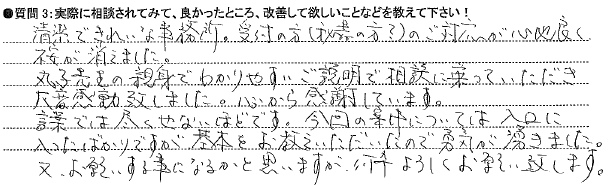 ●質問3:実際に相談されてみて、良かったところ、改善して欲しいことなどを教えて下さい!
清潔できれいな事務所。受付の方(秘書の方?)のご対応が心地良く
不安が消えました。
丸子先生の親身でわかりやすいご説明で相談に乗っていただき
大変感動致しました。心から感謝しています。
言葉では尽くせないほどです。今回の案件については入口に
入ったばかりですが基本をお教えいただいたので勇気が湧きました。
又、お願いする事になるかと思いますが、何卒よろしくお願い致します。